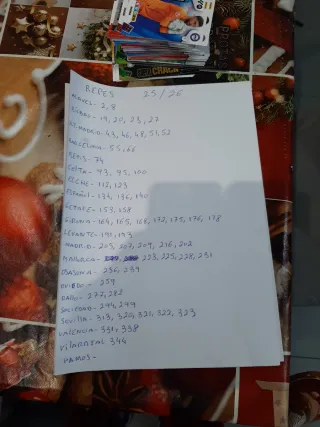 REPES 25/26
ALAVES - 2, 8
BILBAO - 19, 20, 23, 27
AT. MADRID - 43, 46, 48, 51, 52
BARCELONA - 55, 66
BETIS - 74
CELTA - 93, 95, 100
ELCHE - 112, 123
ESPAÑOL - 134, 136, 140
GETAFE - 153, 158
GIRONA - 164, 165, 168, 172, 175, 176, 178
LEVANTE - 191, 193
MADRID - 203, 207, 209, 216, 202
MALLORCA - 223, 225, 228, 231
OSASUNA - 236, 239
OVIEDO - 259
RAYO - 272, 282
SOCIEDAD - 294, 299
SEVILLA - 313, 320, 321, 322, 323
VALENCIA - 331, 338
VILLARREAL 344
VAMOS -